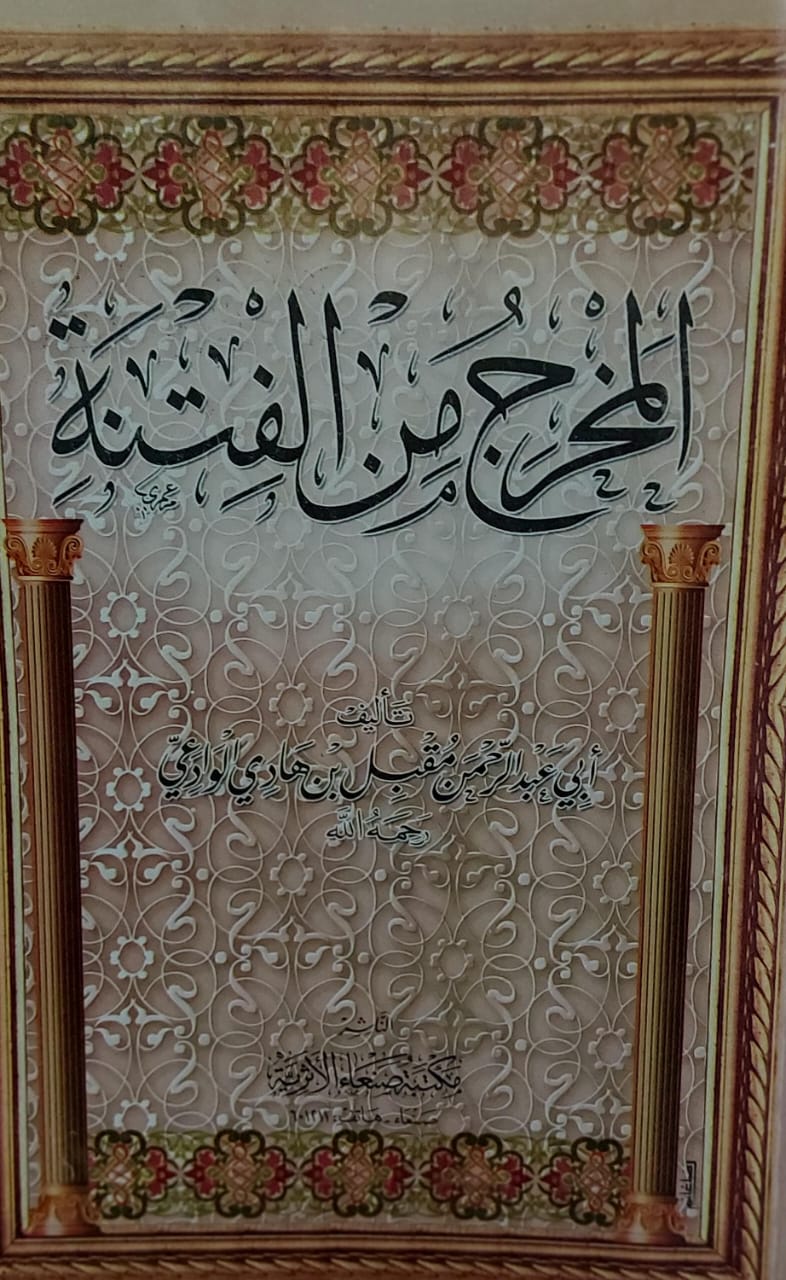 المَخْرَجُ مِنَ الفِتْنَةِ
تأليف
أبي عَبْدِ الرَّحْمَنِ مُقْبِلِ بْنِ هَادِي الوَادِعِيِّ
رَحِمَهُ اللَّه
النَّاشِر
مكتبة صنعاء الأثرية
صنعاء - هاتف: